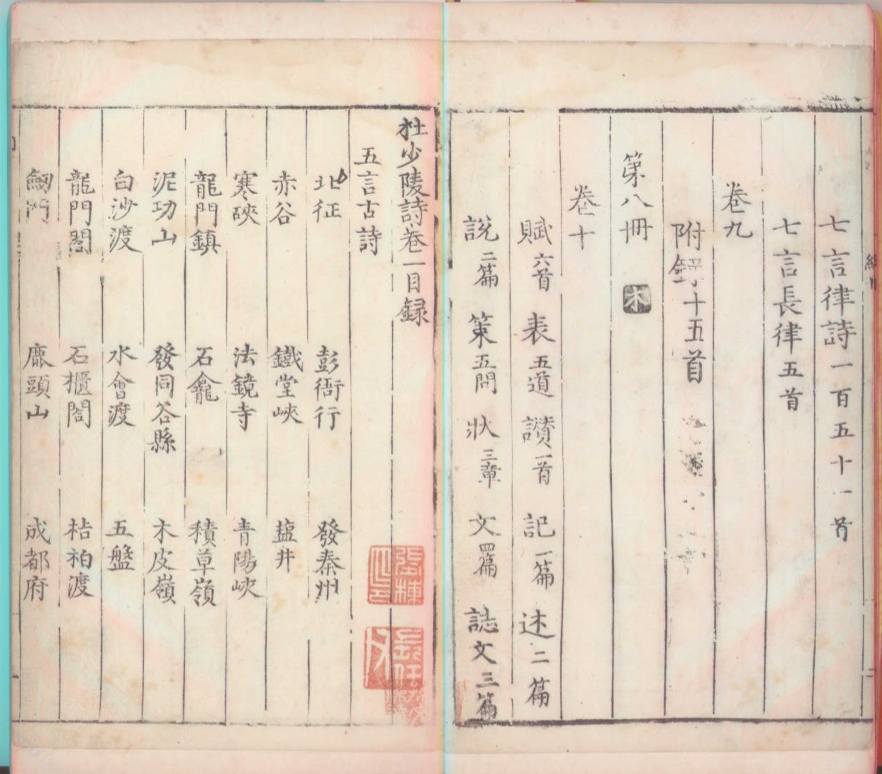 七言律詩一百五十一首
七言長律五首
卷九
附錄十五首
第八冊 木
卷十
賦六首 表五道 讃一首 記一篇 述二篇
說二篇 策五問 狀三章 文四篇 誌文三篇
杜少陵詩卷一目録
五言古詩
北征 彭衙行 發秦州
赤谷 鐵堂峽 盐井
寒硤 法鏡寺 青陽峽
龍門鎮 石龕 積草嶺
泥功山 發同谷縣 木皮嶺
白沙渡 水會渡 五盤
龍門閣 石櫃閣 桔柏渡
劔門 鹿頭山 成都府